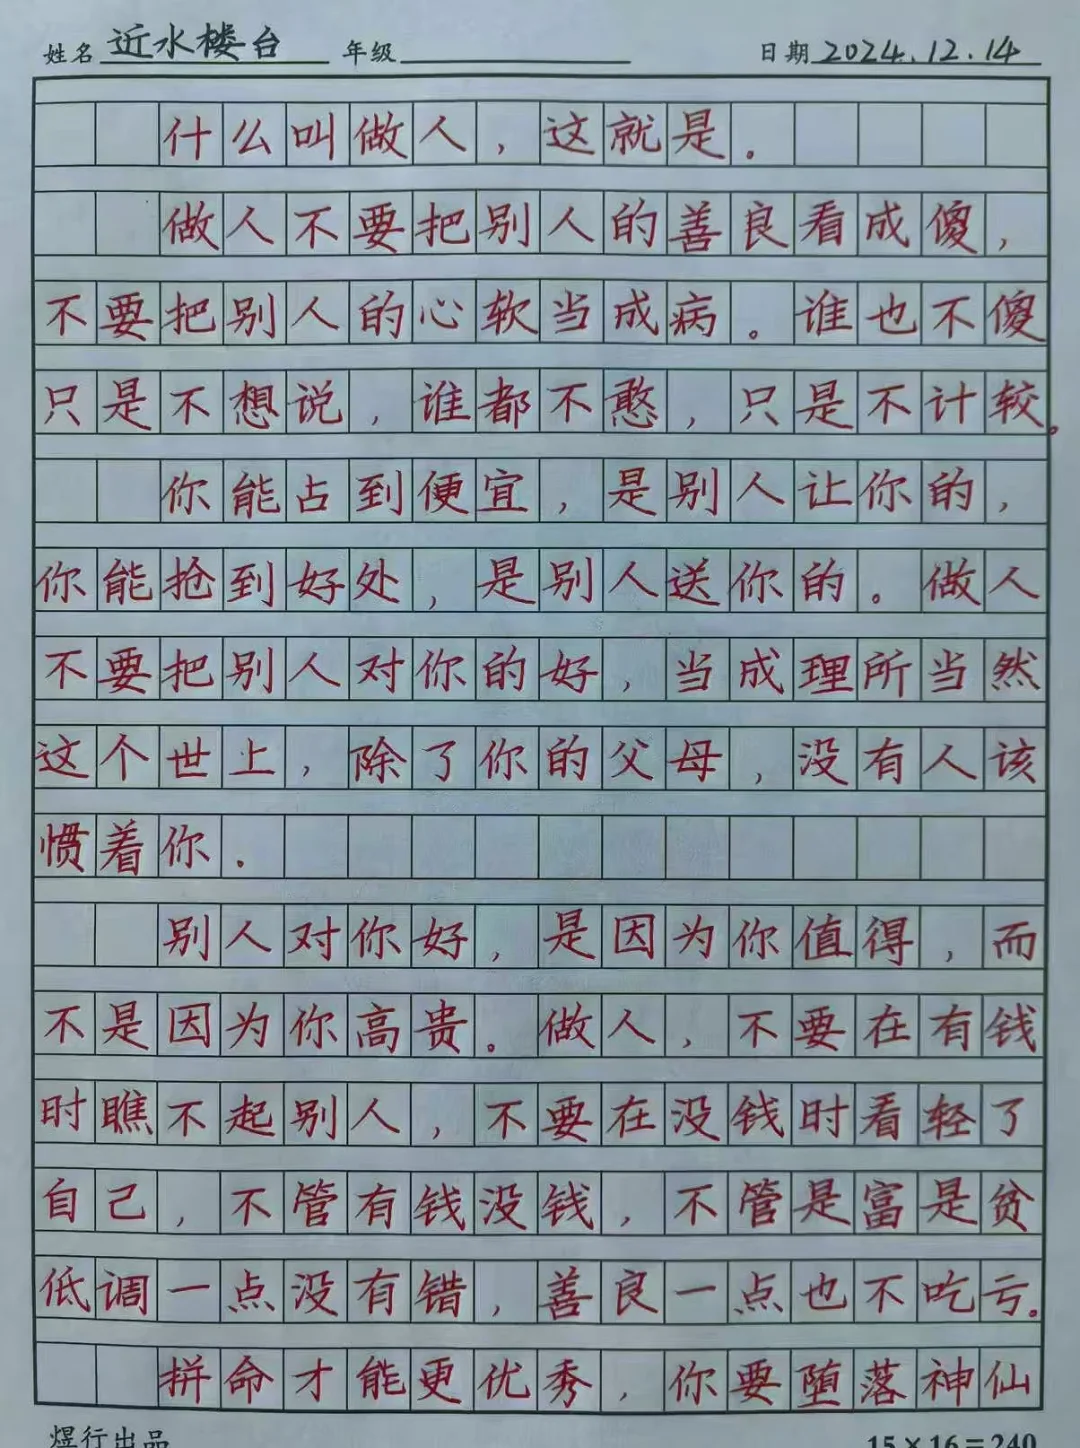 姓名 近水楼台 年级 日期 2024.12.14
什么叫做人，这就是。
做人不要把别人的善良看成傻，
不要把别人的心软当成病。谁也不傻
只是不想说，谁都不憨，只是不计较。
你能占到便宜，是别人让你的，
你能抢到好处，是别人送你的。做人
不要把别人对你的好，当成理所当然
这个世上，除了你的父母，没有人该
惯着你。
别人对你好，是因为你值得，而
不是因为你高贵。做人，不要在有钱
时瞧不起别人，不要在没钱时看轻了
自己，不管有钱没钱，不管是富是贫
低调一点没有错，善良一点也不吃亏。
拼命才能更优秀，你要堕落神仙
煜行出品 15×16=240